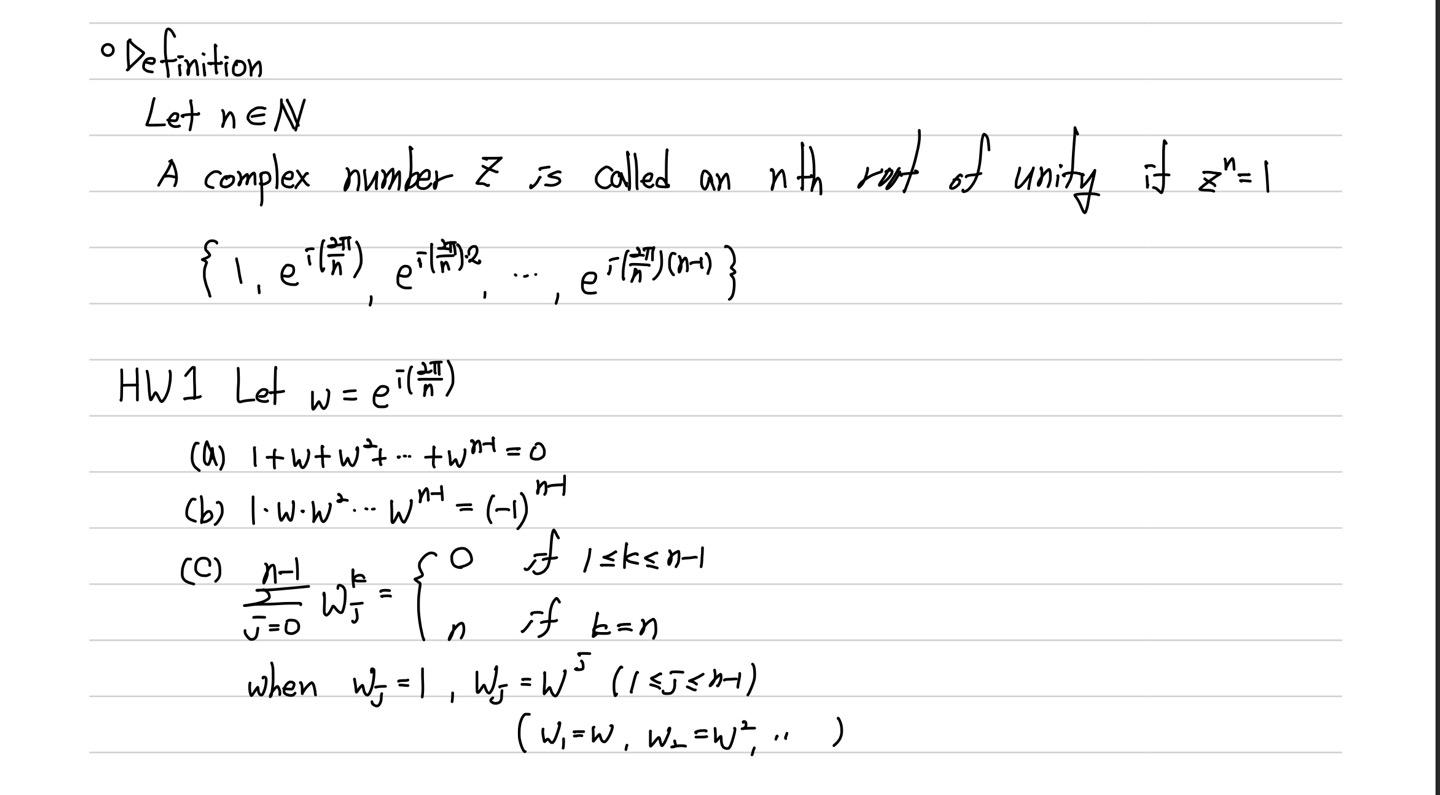 ° Definition
Let n ∈ ℕ
A complex number z is called an nth root of unity if zⁿ = 1
{ 1, e^{i(2π/n)}, e^{i(2π/n)·2}, ..., e^{i(2π/n)(n-1)} }
HW1 Let w = e^{i(2π/n)}
(a) 1+w+w²+ ... +w^{n-1} = 0
(b) 1·w·w² ... w^{n-1} = (-1)^{n-1}
(c) \sum_{j=0}^{n-1} w_j^k = { 0 if 1≤k≤n-1
n if k=n
when w_j = 1, w_j = w^j (1≤j≤n-1)
(w₁=w, w₂=w², .. )